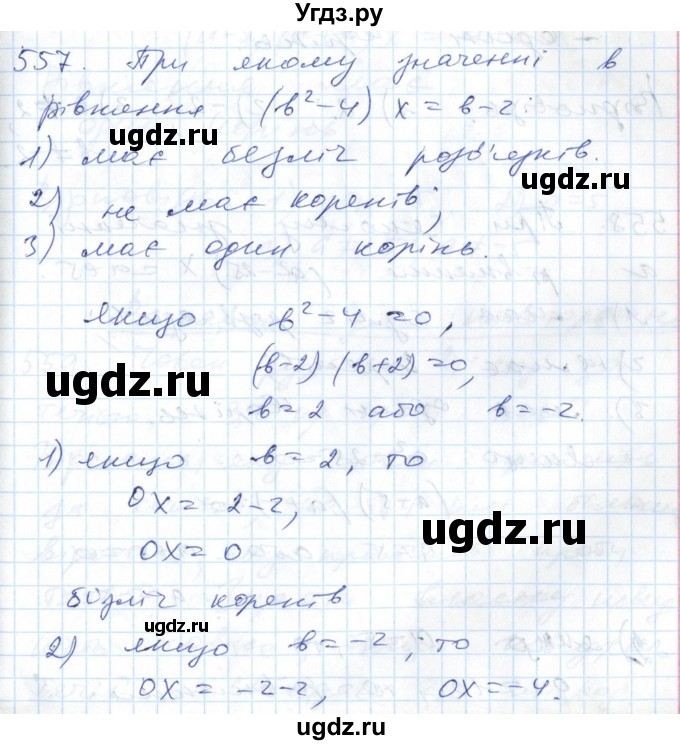 Угдз.ру
557. При якому значенні в
рівняння (в²-4) х = в-2
1) має безліч розв'язків.
2) не має коренів;
3) має один корінь.
Якщо в²-4=0,
(в-2)(в+2)=0,
в=2 або в=-2.
1) якщо в=2, то
0х=2-2,
0х=0
безліч коренів
2) якщо в=-2, то
0х=-2-2, 0х=-4.
ugdz.ru
ugdz.ru
ugdz.ru
ugdz.ru
ugdz.ru
ugdz.ru
ugdz.ru
ugdz.ru